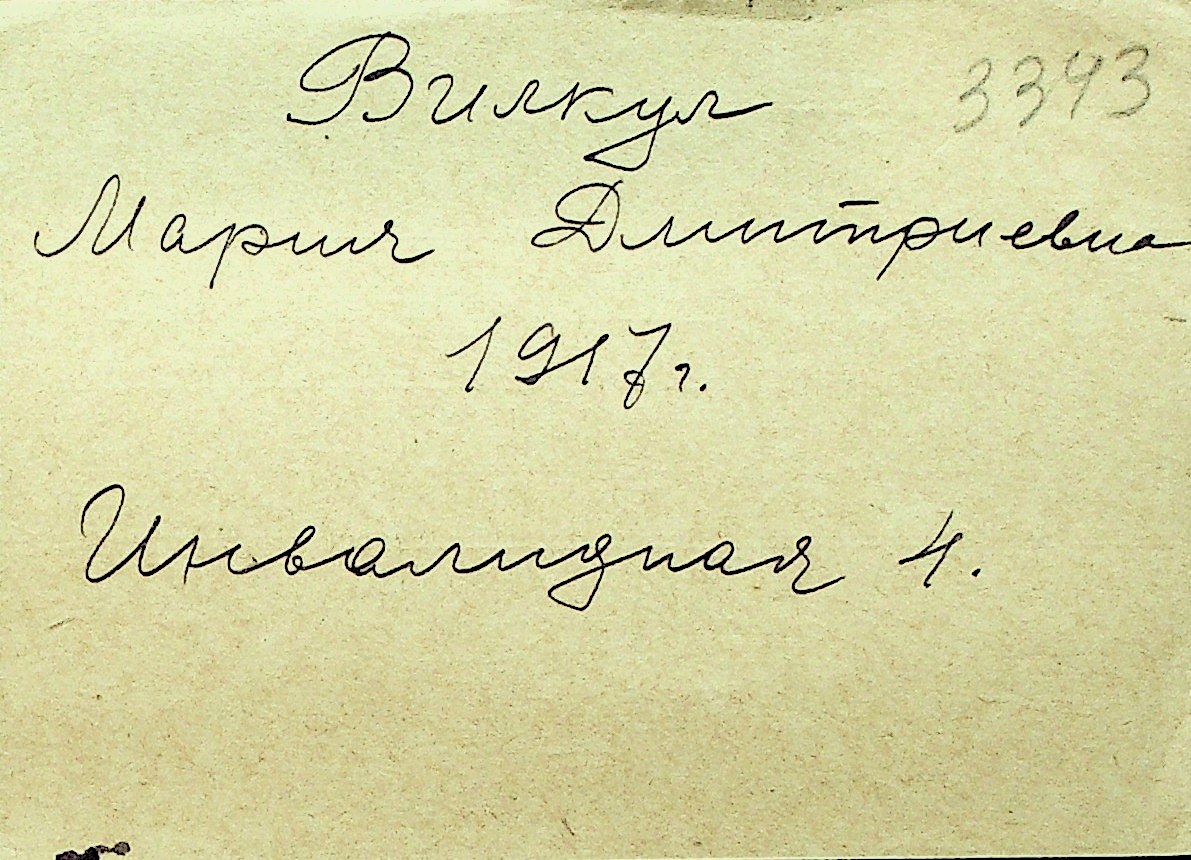 Вилкул 3393
Мария Дмитриевна
1917г.
Инвалидная 4.